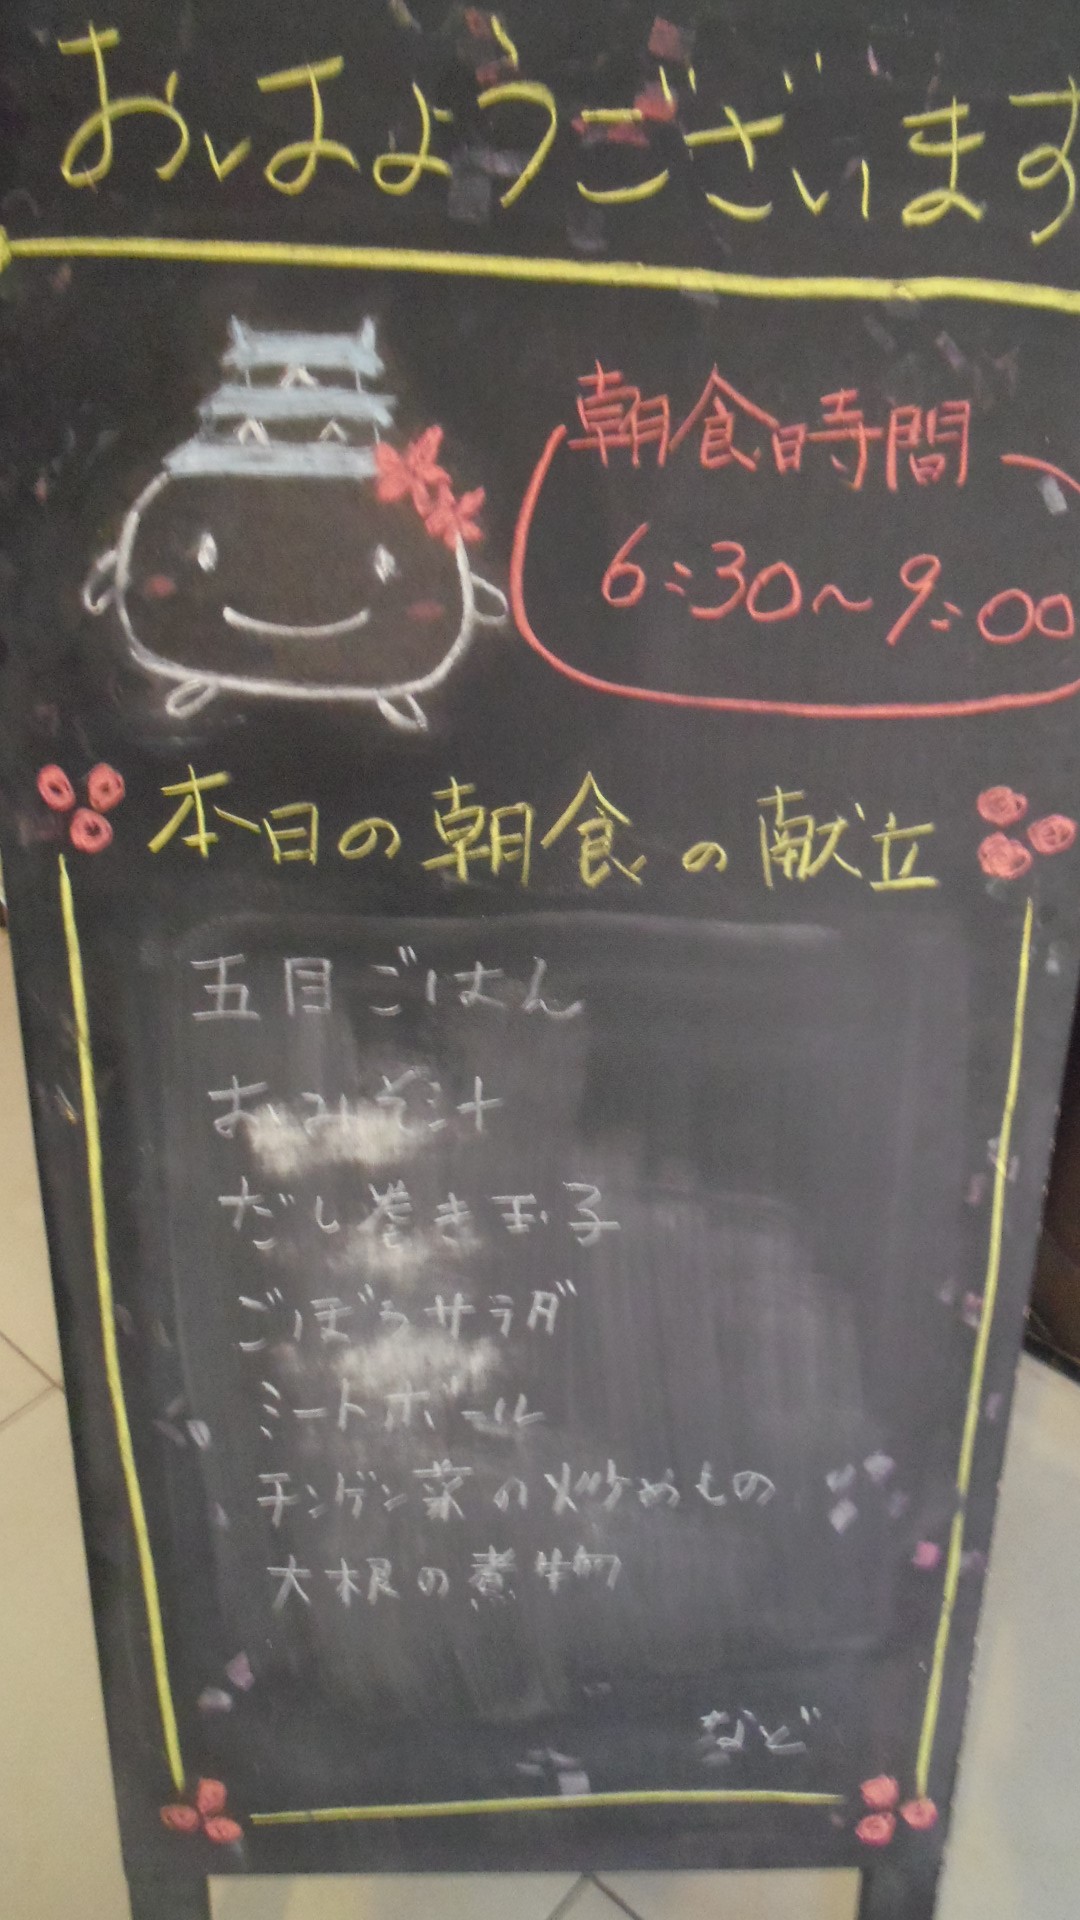 おはようございます
朝食時間
6:30〜9:00
本日の朝食の献立
五目ごはん
おみそ汁
だし巻き玉子
ごぼうサラダ
ミートボール
チンゲン菜の炒めもの
大根の煮物
など